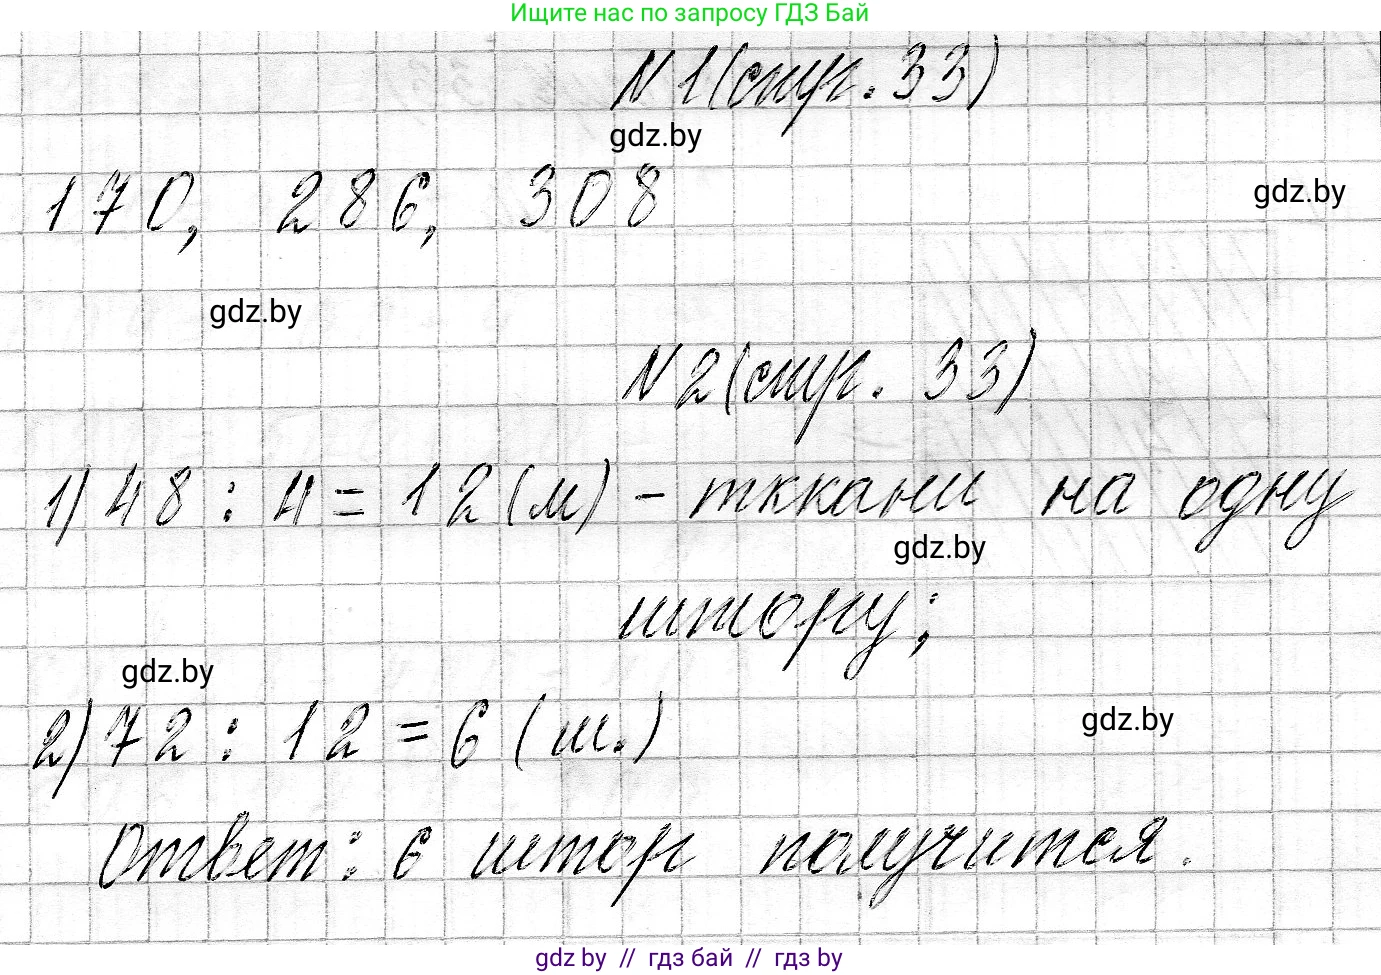 Ищите нас по запросу ГДЗ Бай
N1(стр. 33)
gdz.by
170, 286, 308
gdz.by
gdz.by
N2(стр. 33)
1) 48 : 4 = 12 (м) - тккани на одну
gdz.by
штору;
gdz.by
2) 72 : 12 = 6 (ш.)
gdz.by
Ответ: 6 штор получится.
gdz by // гдз бай // гдз by